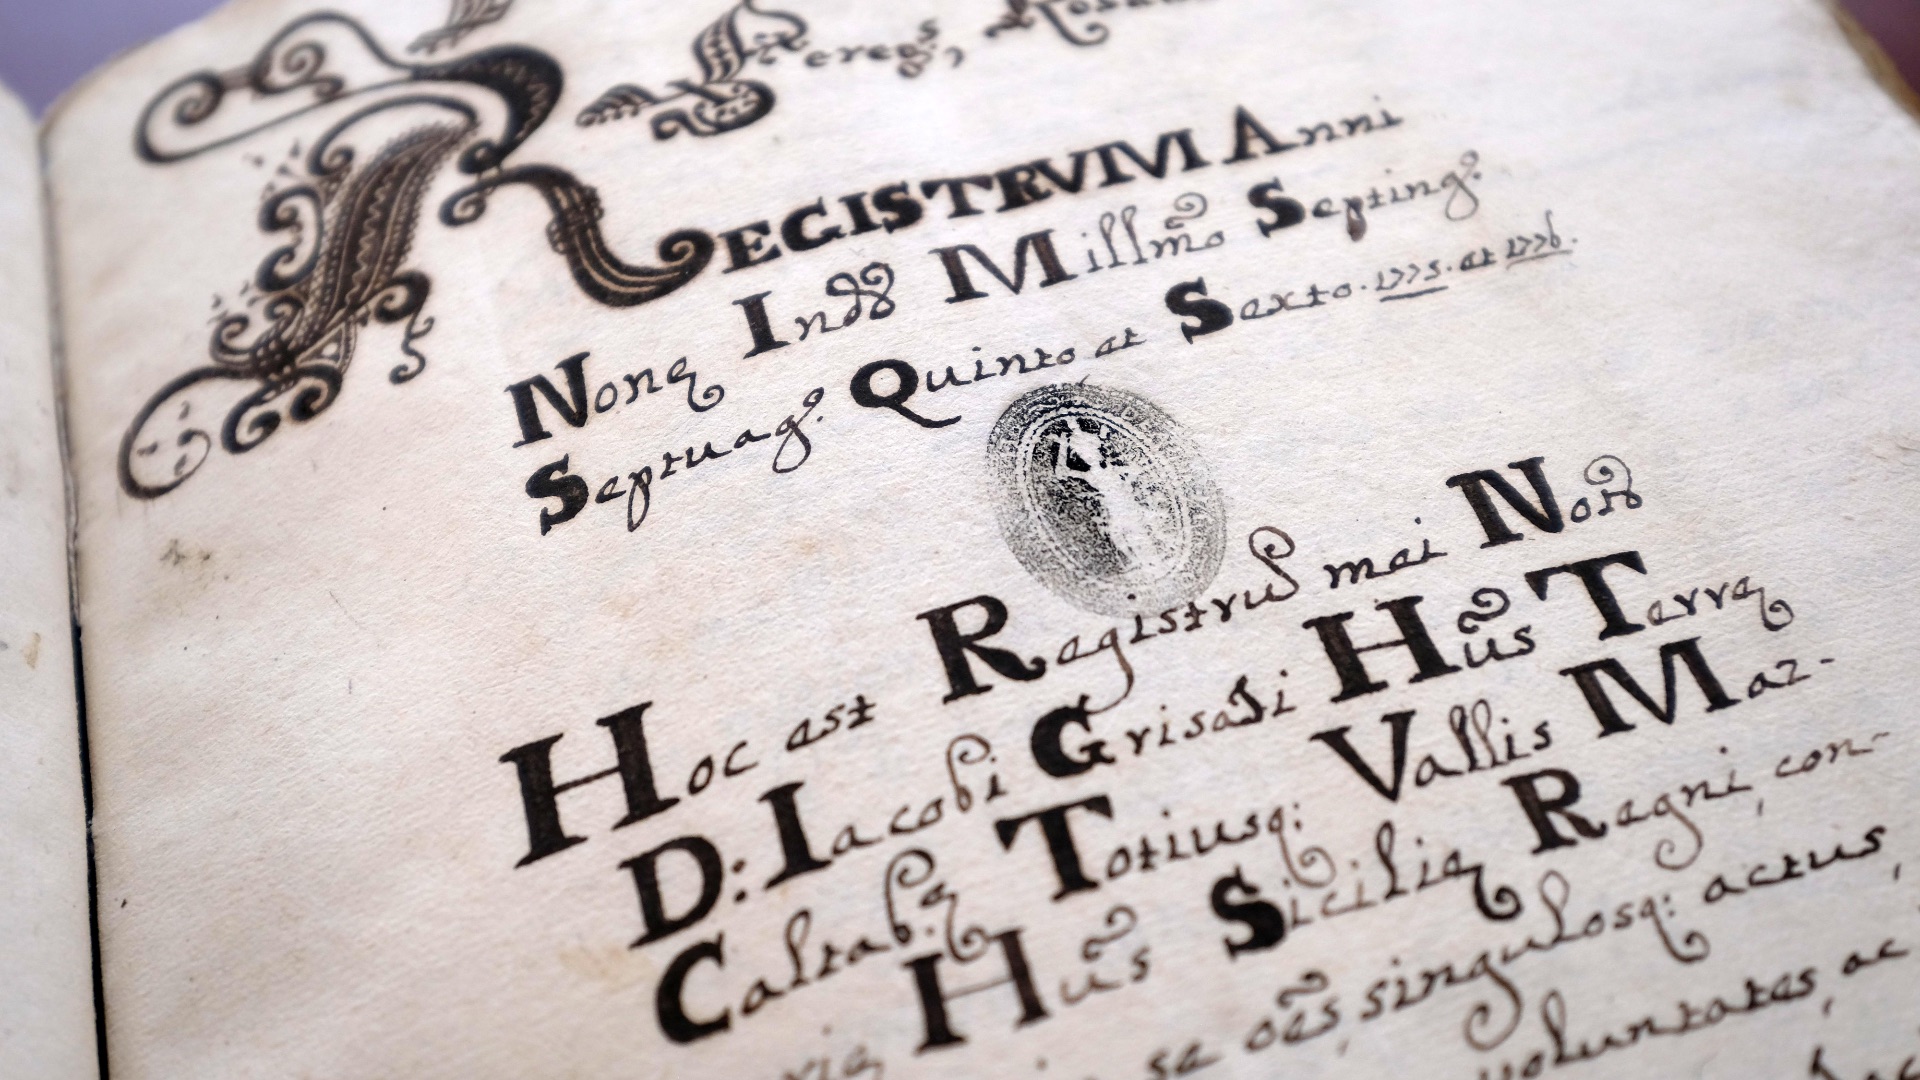 REGISTRVM Anni
Nonę Indō Millm̃o Septingº
Septuagº. Quinto et Sexto. 1775. et 1776.
Hoc est Registrū mei Noṝ
D: Iacobi Grisafi Hūs Terrę
Caltab.ę Totiusq: Vallis Maz-
Hūs Sicilię Regni, con-
se oēs, singulosq: actus,
voluntates, ac